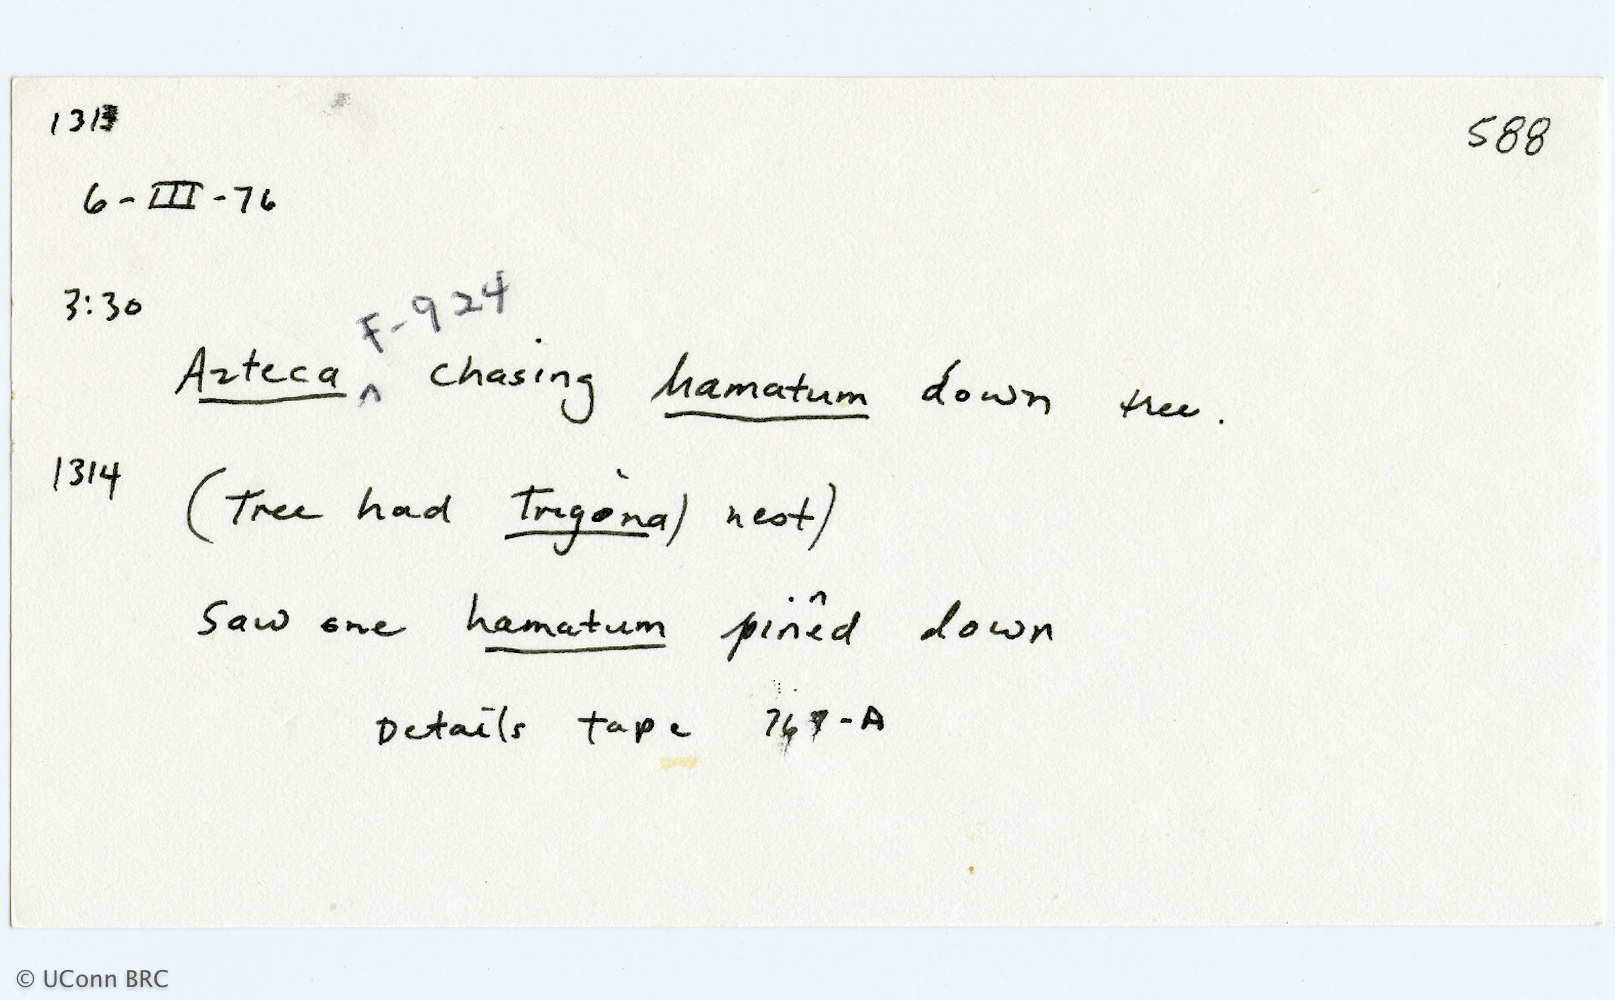 1313
588
6-III-76
3:30
F-924
Azteca ^ chasing hamatum down tree.
1314 (Tree had Trigona) nest)
Saw one hamatum pined down
n
Details tape 767-A
© UConn BRC